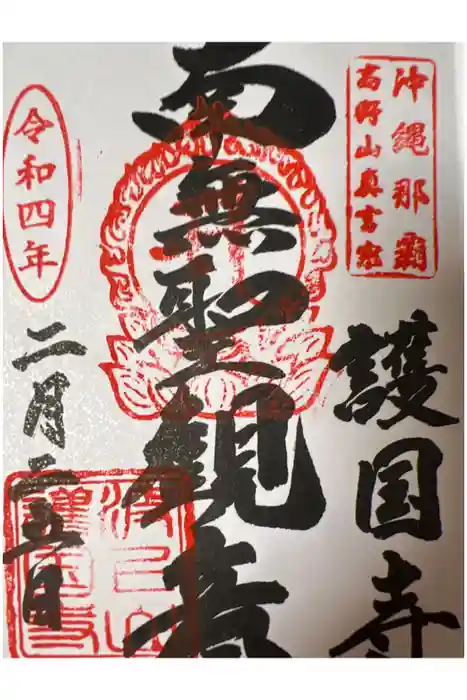 沖縄那覇
高野山真言宗
護国寺
南無聖観音
令和四年
二月二五日
波上山
護国寺